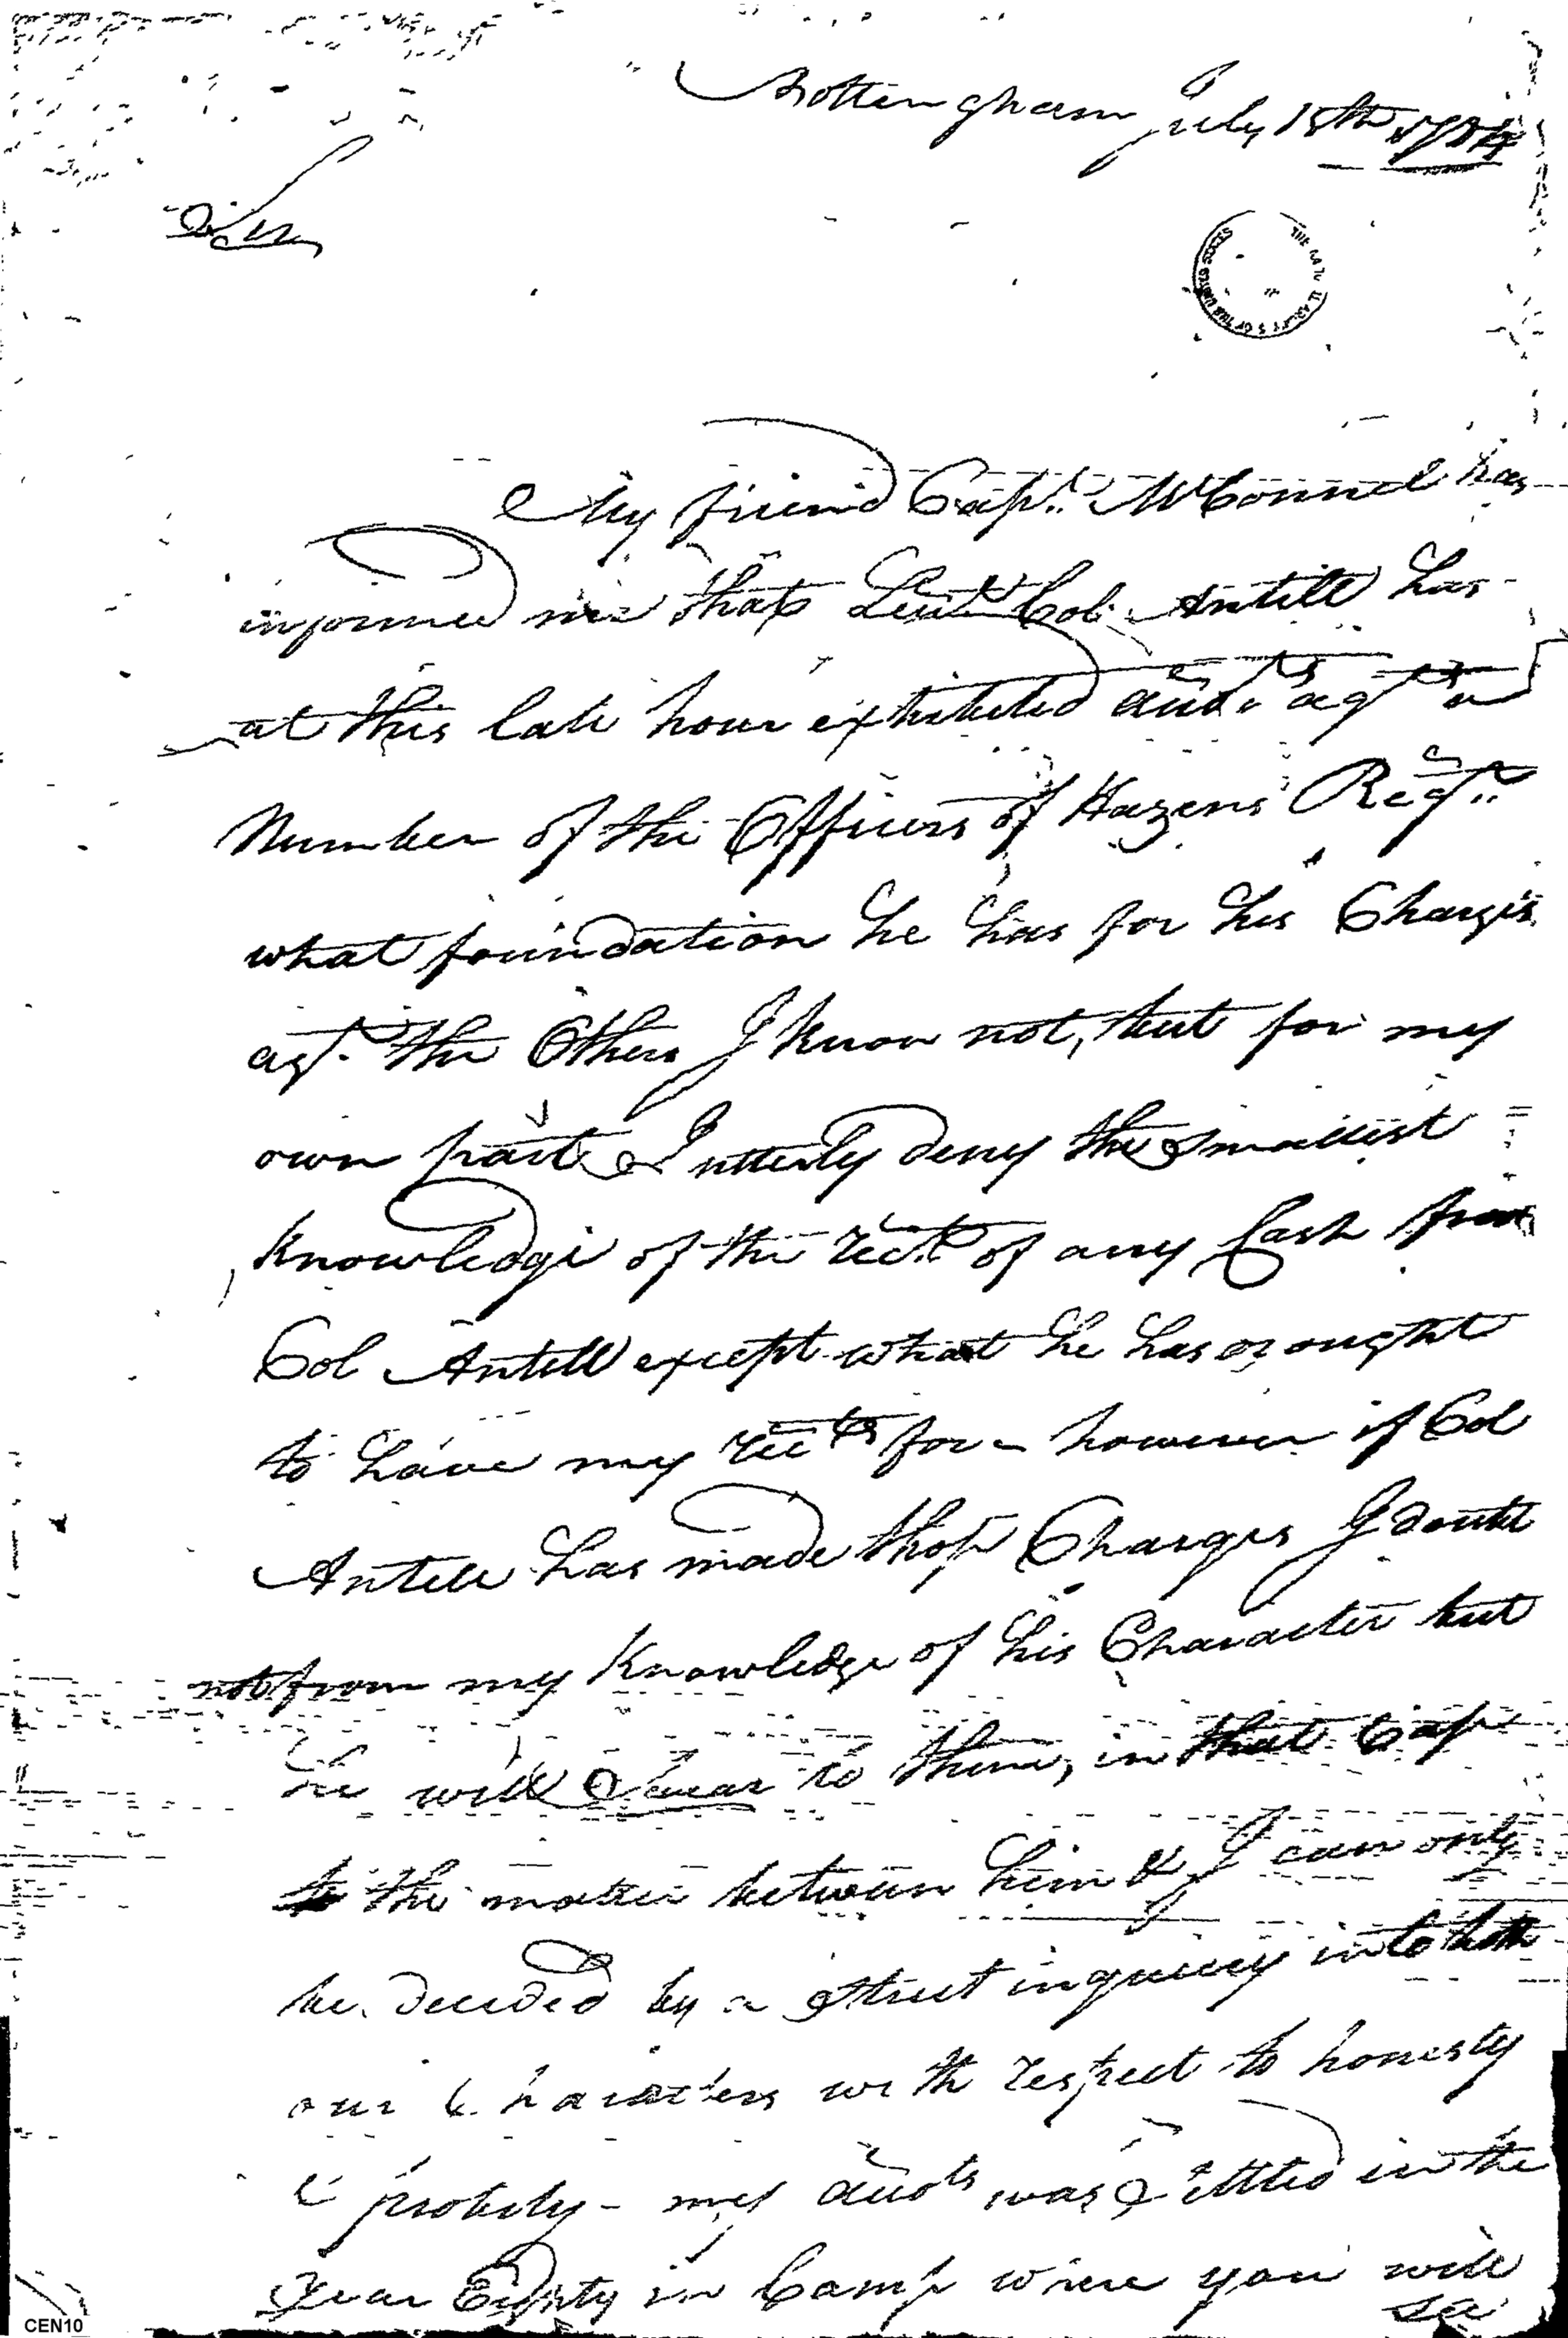 Nottingham July 18th 1784
Sir
My friend Capt. McConnel has
informed me that Lieut Col. Antill has
at this late hour exhibited accts. agst a
Number of the Officers of Hazens Regt.
what foundation he has for his Charges
agt. the Others I know not, but for my
own part I utterly deny the smallest
Knowledge of the rect. of any Cash from
Col Antill except what he has or ought
to have my rects for - however if Col
Antill has made those Charges I doubt
not from my Knowledge of his Character but
he will Swear to them, in that Case
the matter between him & I can only
be decided by a strict inquiry into both
our Characters with respect to honesty
& probity - my accts was settled in the
Year Eighty in Camp where you will
see
THE NATIONAL ARCHIVES OF THE UNITED STATES
CEN10